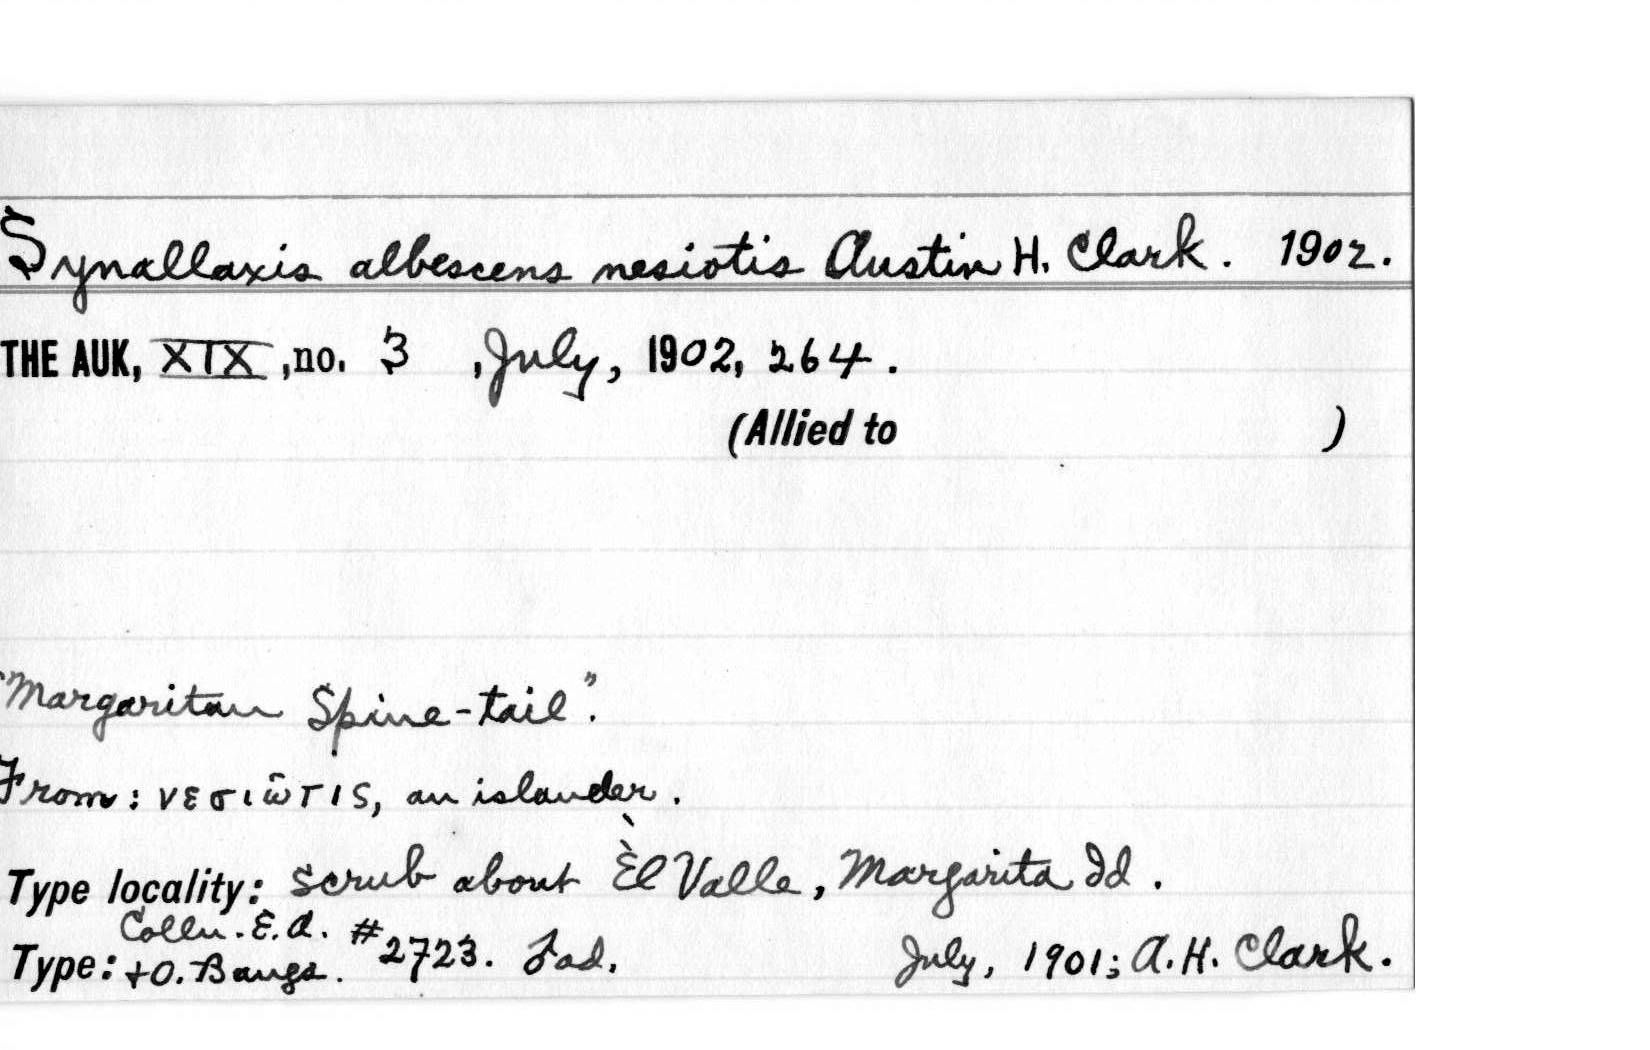 Synallaxis albescens nesiotis Austin H. Clark. 1902.
THE AUK, XIX, no. 3, July, 1902, 264.
(Allied to )
"Margaritan Spine-tail".
From: νεσιω̃τις, an islander.
Type locality: Scrub about El Valle, Margarita Id.
Colln. E.A. #2723. ad. July, 1901; A.H. Clark.
Type: +O. Bangs.